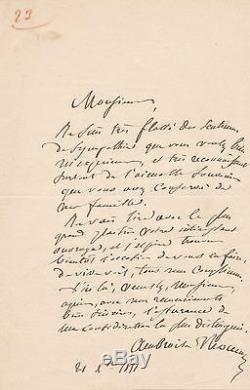 23
Monsieur,
Je suis très flatté des sentiments
de sympathie que vous voulez bien
m'exprimer, et très reconnaissant
surtout de l'aimable souvenir
que vous avez conservé de
ma famille.
Je vais lire avec le plus
grand plaisir votre intéressant
ouvrage, et j'espère trouver
bientôt l'occasion de vous en faire,
de vive voix, tous mes compliments.
D'ici là, veuillez, Monsieur,
agréer, avec mes remerciements
bien sincères, l'assurance de
ma considération la plus distinguée.
Ambroise Thomas
21